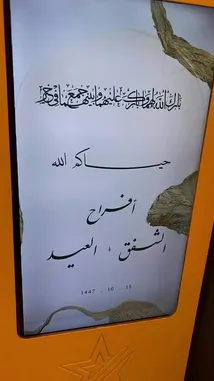 بارك الله لهما وبارك عليهما وجمع بينهما في خير
حياكم الله
أفراح
الشفق & العيد
1447 . 10 . 15